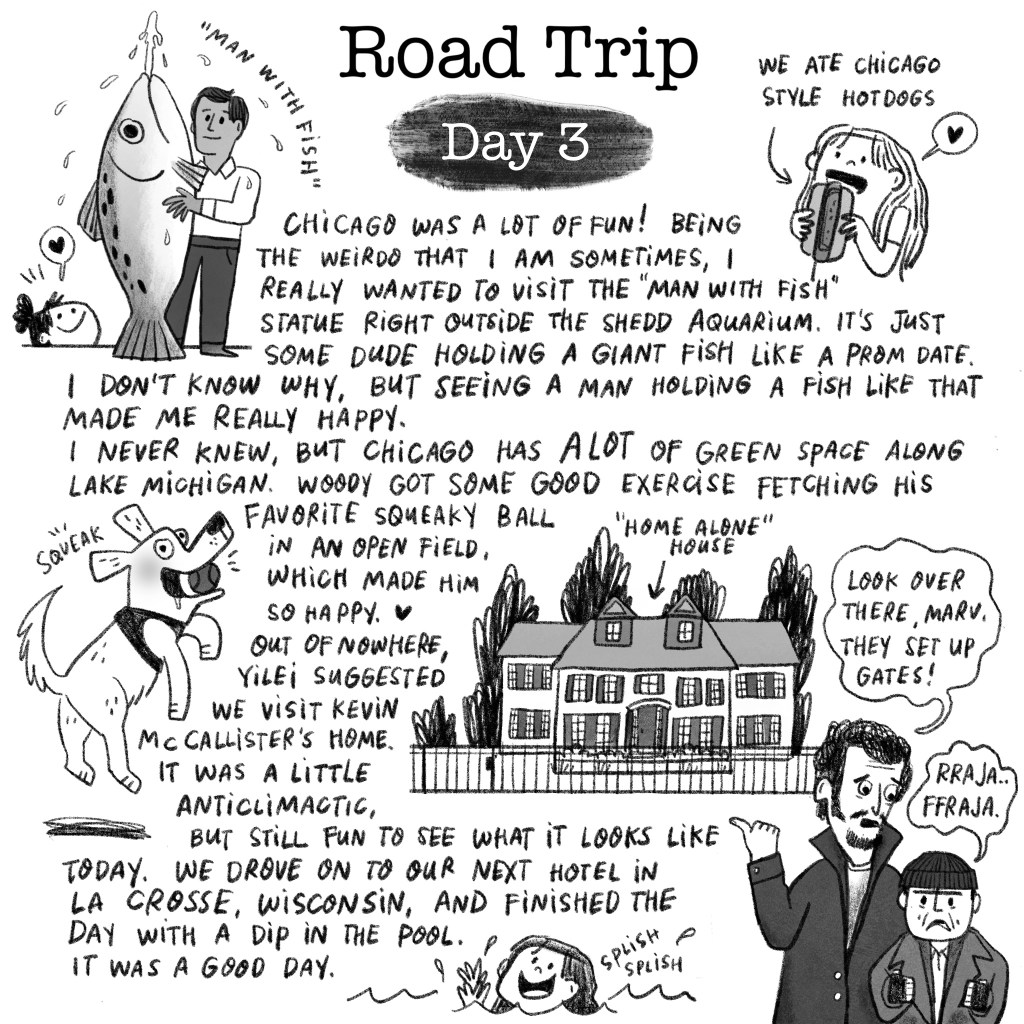 Road Trip
Day 3
"MAN WITH FISH"
WE ATE CHICAGO
STYLE HOTDOGS
CHICAGO WAS A LOT OF FUN! BEING
THE WEIRDO THAT I AM SOMETIMES, I
REALLY WANTED TO VISIT THE "MAN WITH FISH"
STATUE RIGHT OUTSIDE THE SHEDD AQUARIUM. IT'S JUST
SOME DUDE HOLDING A GIANT FISH LIKE A PROM DATE.
I DON'T KNOW WHY, BUT SEEING A MAN HOLDING A FISH LIKE THAT
MADE ME REALLY HAPPY.
I NEVER KNEW, BUT CHICAGO HAS A LOT OF GREEN SPACE ALONG
LAKE MICHIGAN. WOODY GOT SOME GOOD EXERCISE FETCHING HIS
FAVORITE SQUEAKY BALL
IN AN OPEN FIELD,
WHICH MADE HIM
SO HAPPY. ♥
OUT OF NOWHERE,
YILEI SUGGESTED
WE VISIT KEVIN
MCCALLISTER'S HOME.
IT WAS A LITTLE
ANTICLIMACTIC,
BUT STILL FUN TO SEE WHAT IT LOOKS LIKE
TODAY. WE DROVE ON TO OUR NEXT HOTEL IN
LA CROSSE, WISCONSIN, AND FINISHED THE
DAY WITH A DIP IN THE POOL.
IT WAS A GOOD DAY.
SQUEAK
"HOME ALONE"
HOUSE
LOOK OVER
THERE, MARV.
THEY SET UP
GATES!
RRAJA..
FFRAJA.
SPLISH
SPLISH